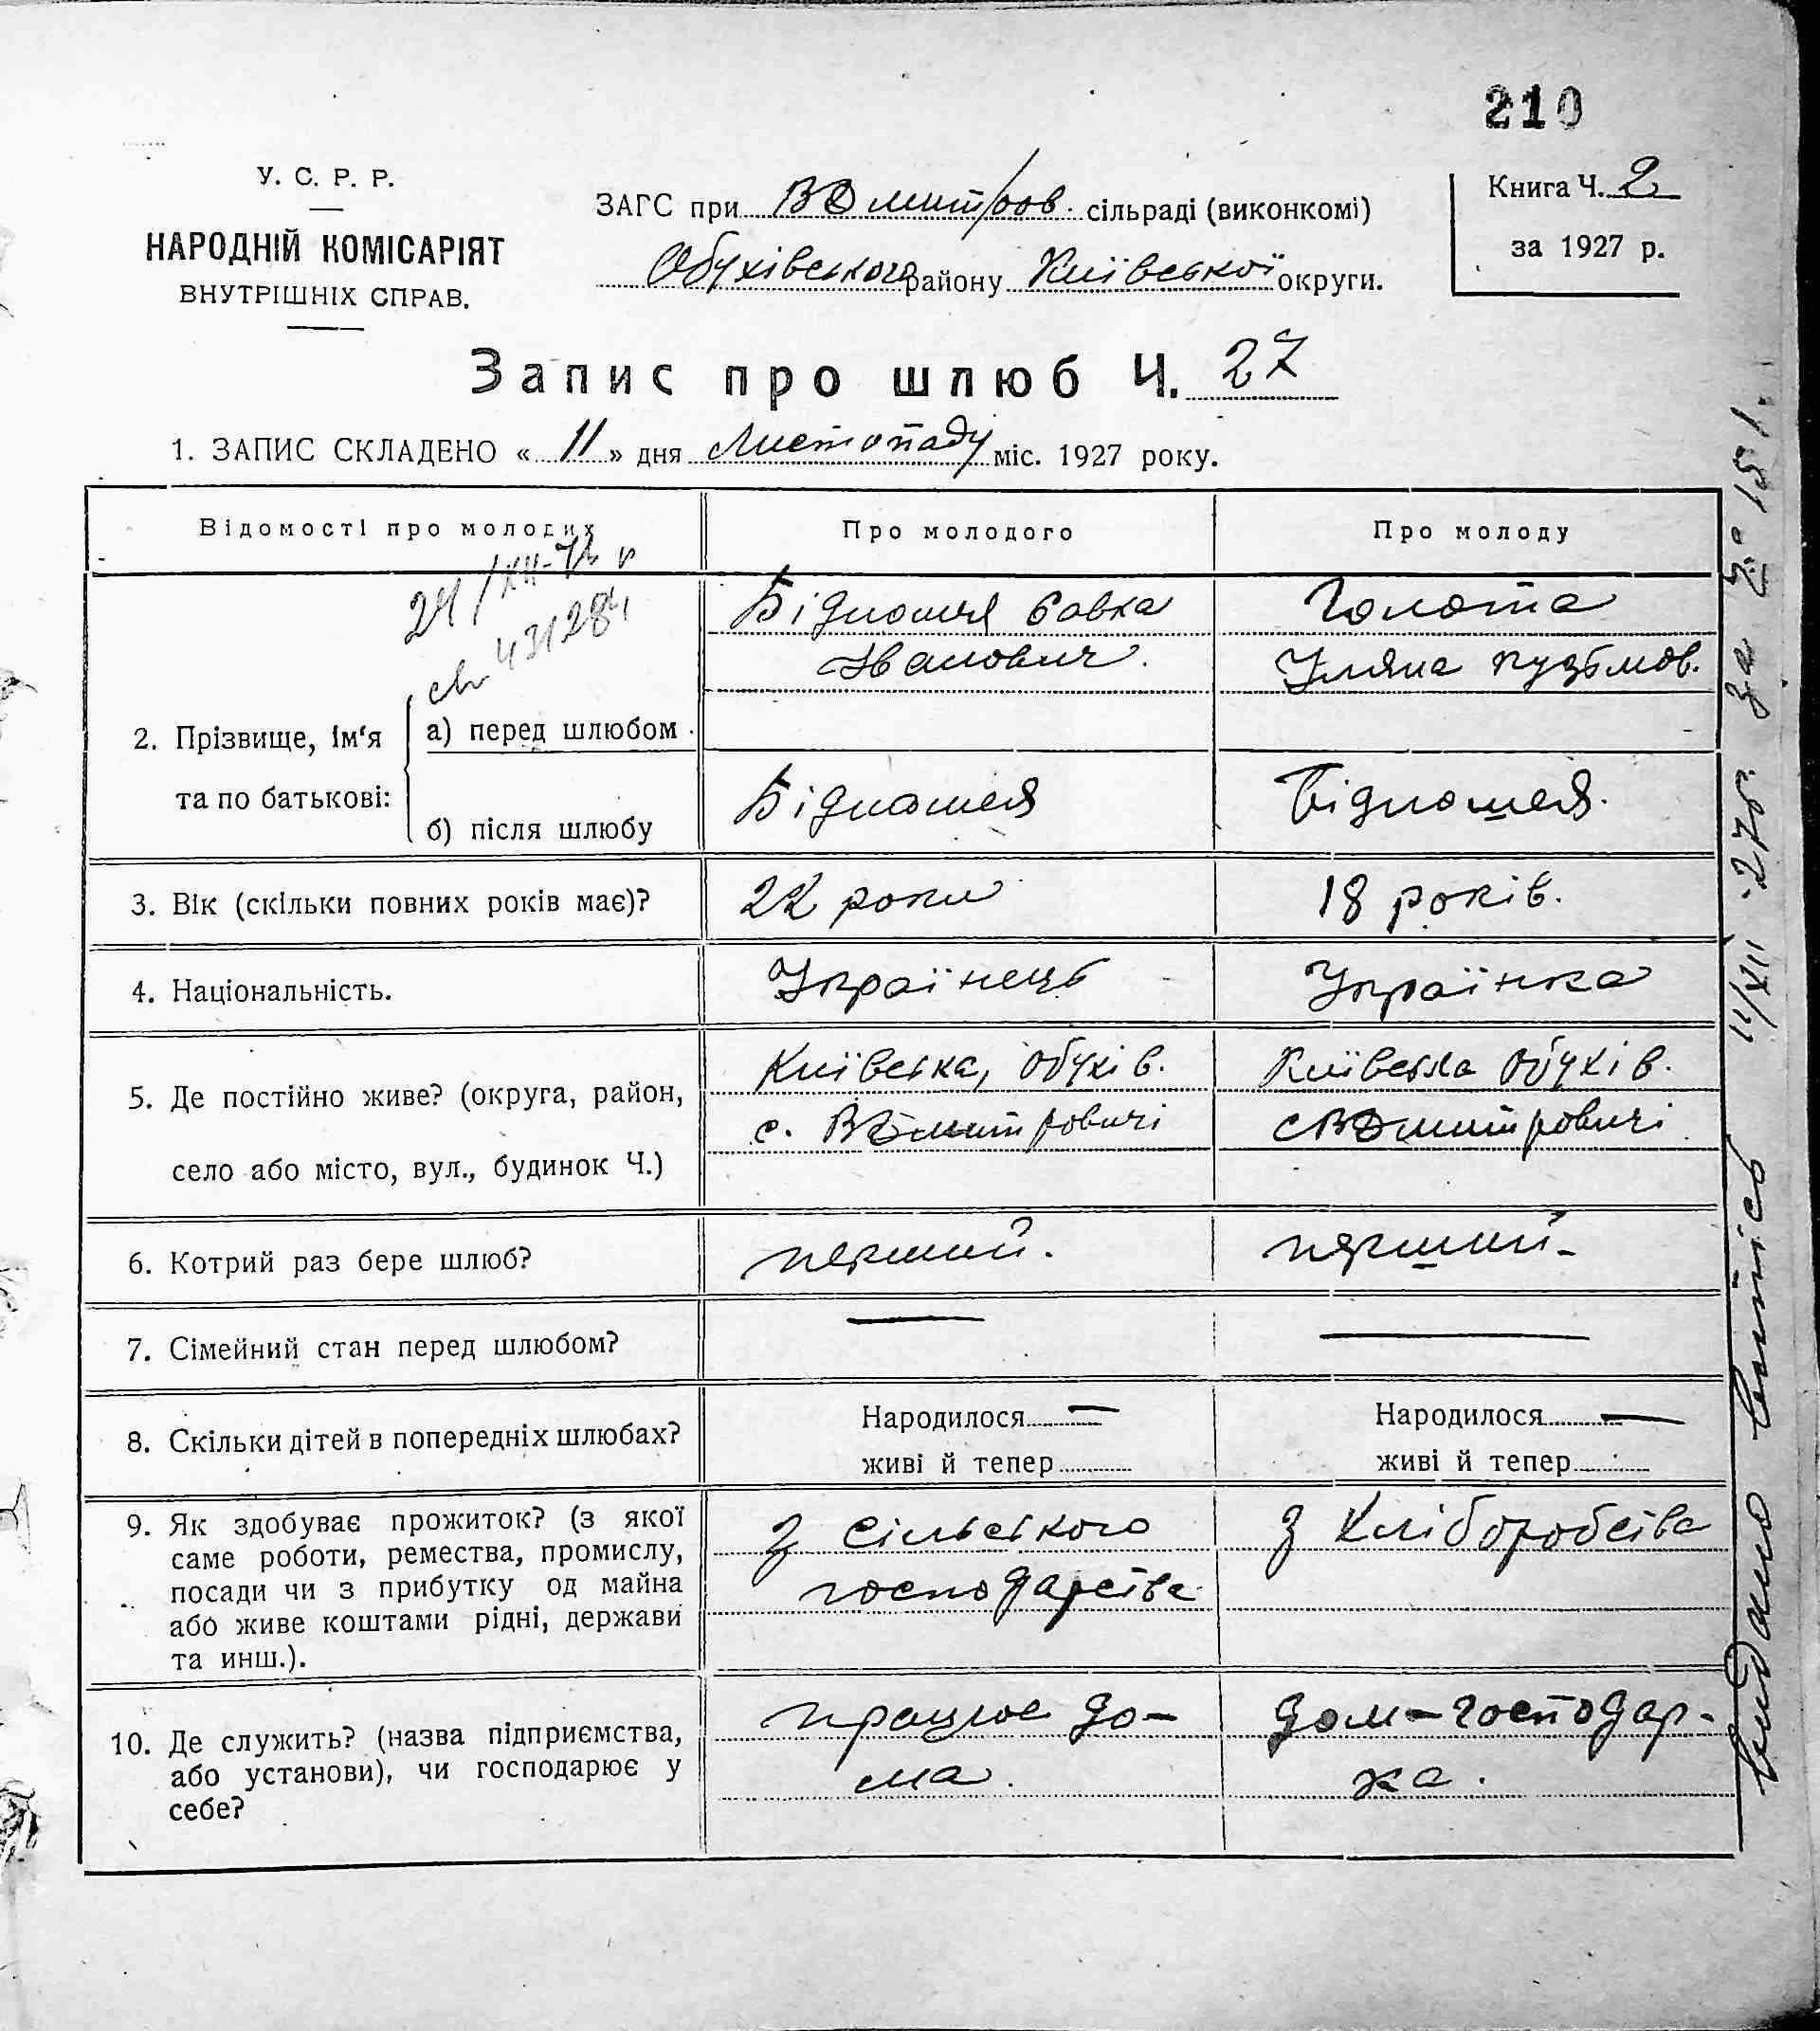 210
У. С. Р. Р.
НАРОДНІЙ КОМІСАРІЯТ
ВНУТРІШНІХ СПРАВ.
ЗАГС при ВДмитров. сільраді (виконкомі)
Обухівського району Київської округи.
Книга Ч. 2
за 1927 р.
Запис про шлюб Ч. 27
1. ЗАПИС СКЛАДЕНО « 11 » дня Листопаду міс. 1927 року.
Відомості про молодих
Про молодого
Про молоду
24/XII-72 р
431284
2. Прізвище, ім‘я та по батькові:
а) перед шлюбом
Бідношея Савка
Іванович.
Голота
Уляна Кузьмов.
б) після шлюбу
Бідношея
Бідношея.
3. Вік (скільки повних років має)?
22 роки
18 років.
4. Національність.
Українець
Українка
5. Де постійно живе? (округа, район,
село або місто, вул., будинок Ч.)
Київська, Обухів.
с. ВДмитровичі
Київська Обухів.
с ВДмитровичі
6. Котрий раз бере шлюб?
перший.
перший-
7. Сімейний стан перед шлюбом?
—
—
8. Скільки дітей в попередніх шлюбах?
Народилося —
живі й тепер
Народилося —
живі й тепер
9. Як здобуває прожиток? (з якої
саме роботи, ремества, промислу,
посади чи з прибутку од майна
або живе коштами рідні, держави
та инш.).
З сільського
господарства
З хліборобства
10. Де служить? (назва підприємства,
або установи), чи господарює у
себе?
працює до-
ма.
дом-господар-
ка.
Видано витпісь 11/XII-27р. за № 151.